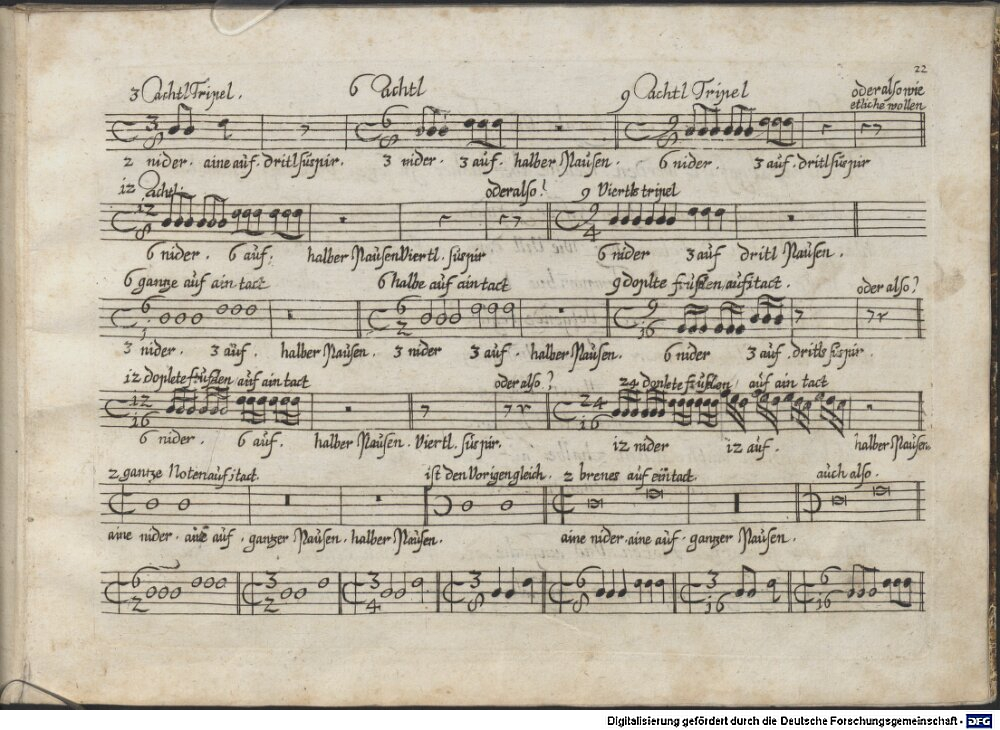 22
3 Achtl Tripel. 6 Achtl 9 Achtl Tripel oder also wie
etliche wollen
3 8 6 8 9 8
2 nider. aine auf. dritl suspir. 3 nider. 3 auf. halber Pausen. 6 nider. 3 auf. dritl suspir
12 Achtl. oder also? 9 Viertls tripel
12 8 9 4
6 nider. 6 auf. halber Pausen Viertl. suspir 6 nider 3 auf dritl Pausen.
6 gantze auf ain tact 6 halbe auf ain tact 9 doplte fuslen, auf i tact. oder also?
6 1 6 2 9 16
3 nider. 3 auf. halber Pausen. 3 nider 3 auf. halber Pausen. 6 nider 3 auf. dritls suspir.
12 doplete fuslen auf ain tact oder also? 24 doplete fuslen auf ain tact
12 16 24 16
6 nider. 6 auf. halber Pausen. Viertl. suspir. 12 nider 12 auf. halber Pausen.
2 gantze Noten auf i tact. ist den Vorigen gleich. 2 breves auf ein tact. auch also.
aine nider. aine auf. gantzer Pausen. halber Pausen. aine nider. aine auf. gantzer Pausen.
6 2 3 2 3 4 3 8 6 8 3 16 6 16
Digitalisierung gefördert durch die Deutsche Forschungsgemeinschaft - DFG